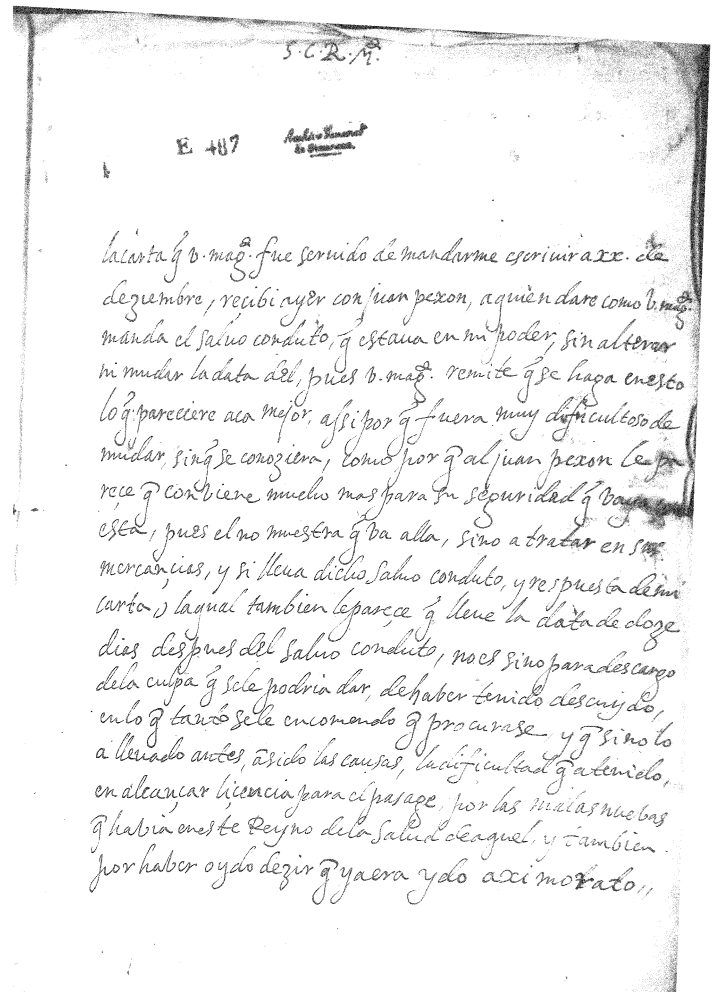 S. C. R. M.ᵈ
E 487
Archivo General
de Simancas.
la carta q̃ v. mag.ᵈ fue servido de mandarme escrivir a xx. de
deziembre, recibi ayer con juan pexon, a quien dare como v. mag.ᵈ
manda el salvo conduto, q̃ estava en mi poder, sin alterar
ni mudar la data del, pues v. mag.ᵈ remite q̃ se haga en esto
lo q̃ pareciere aca mejor, assi por q̃ fuera muy dificultoso de
mudar, sin q̃ se conoziera, como por q̃ al juan pexon le pa
reçe q̃ conviene mucho mas para su seguridad q̃ vaya
esta, pues el no muestra q̃ va alla, sino a tratar en sus
mercançias, y si lleva dicho salvo conduto, y respuesta de mi
carta, la qual tambien le pareçe q̃ lleve la data de doze
dias despues del salvo conduto, no es sino para descargo
dela culpa q̃ sele podria dar, de haber tenido descuydo,
en lo q̃ tanto sele encomendo q̃ procurase, y q̃ si no lo
a llevado antes, ã sido las causas, la dificultad q̃ a tenido,
en alcançar liçencia para el pasage, por las malas nuebas
q̃ habia en este Reyno dela salud de aquel, y tambien
por haber oydo dezir q̃ ya era ydo a ximo rato,,